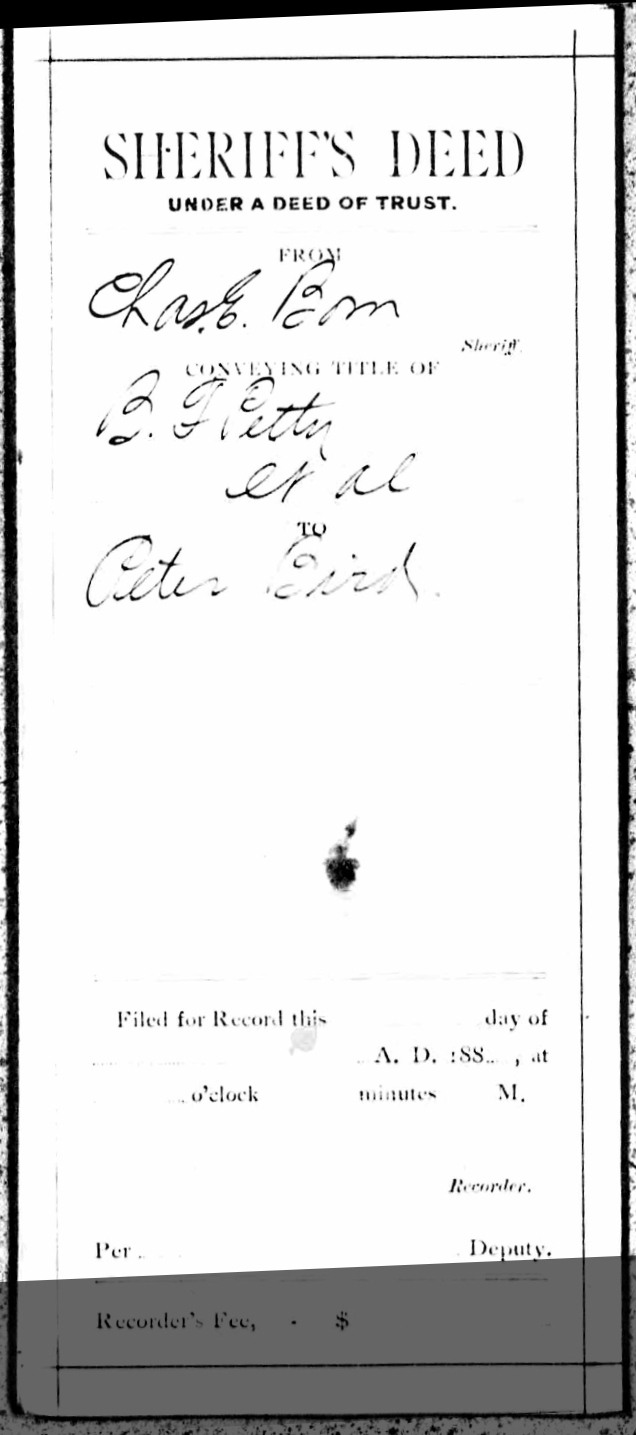 SHERIFF'S DEED
UNDER A DEED OF TRUST.
FROM
Chas. E. Born
Sheriff.
CONVEYING TITLE OF
B. F. Petty
et al
TO
Peter Bird.
Filed for Record this day of
A. D. 188 , at
o'clock minutes M.
Recorder.
Per Deputy.
Recorder's Fee, - $